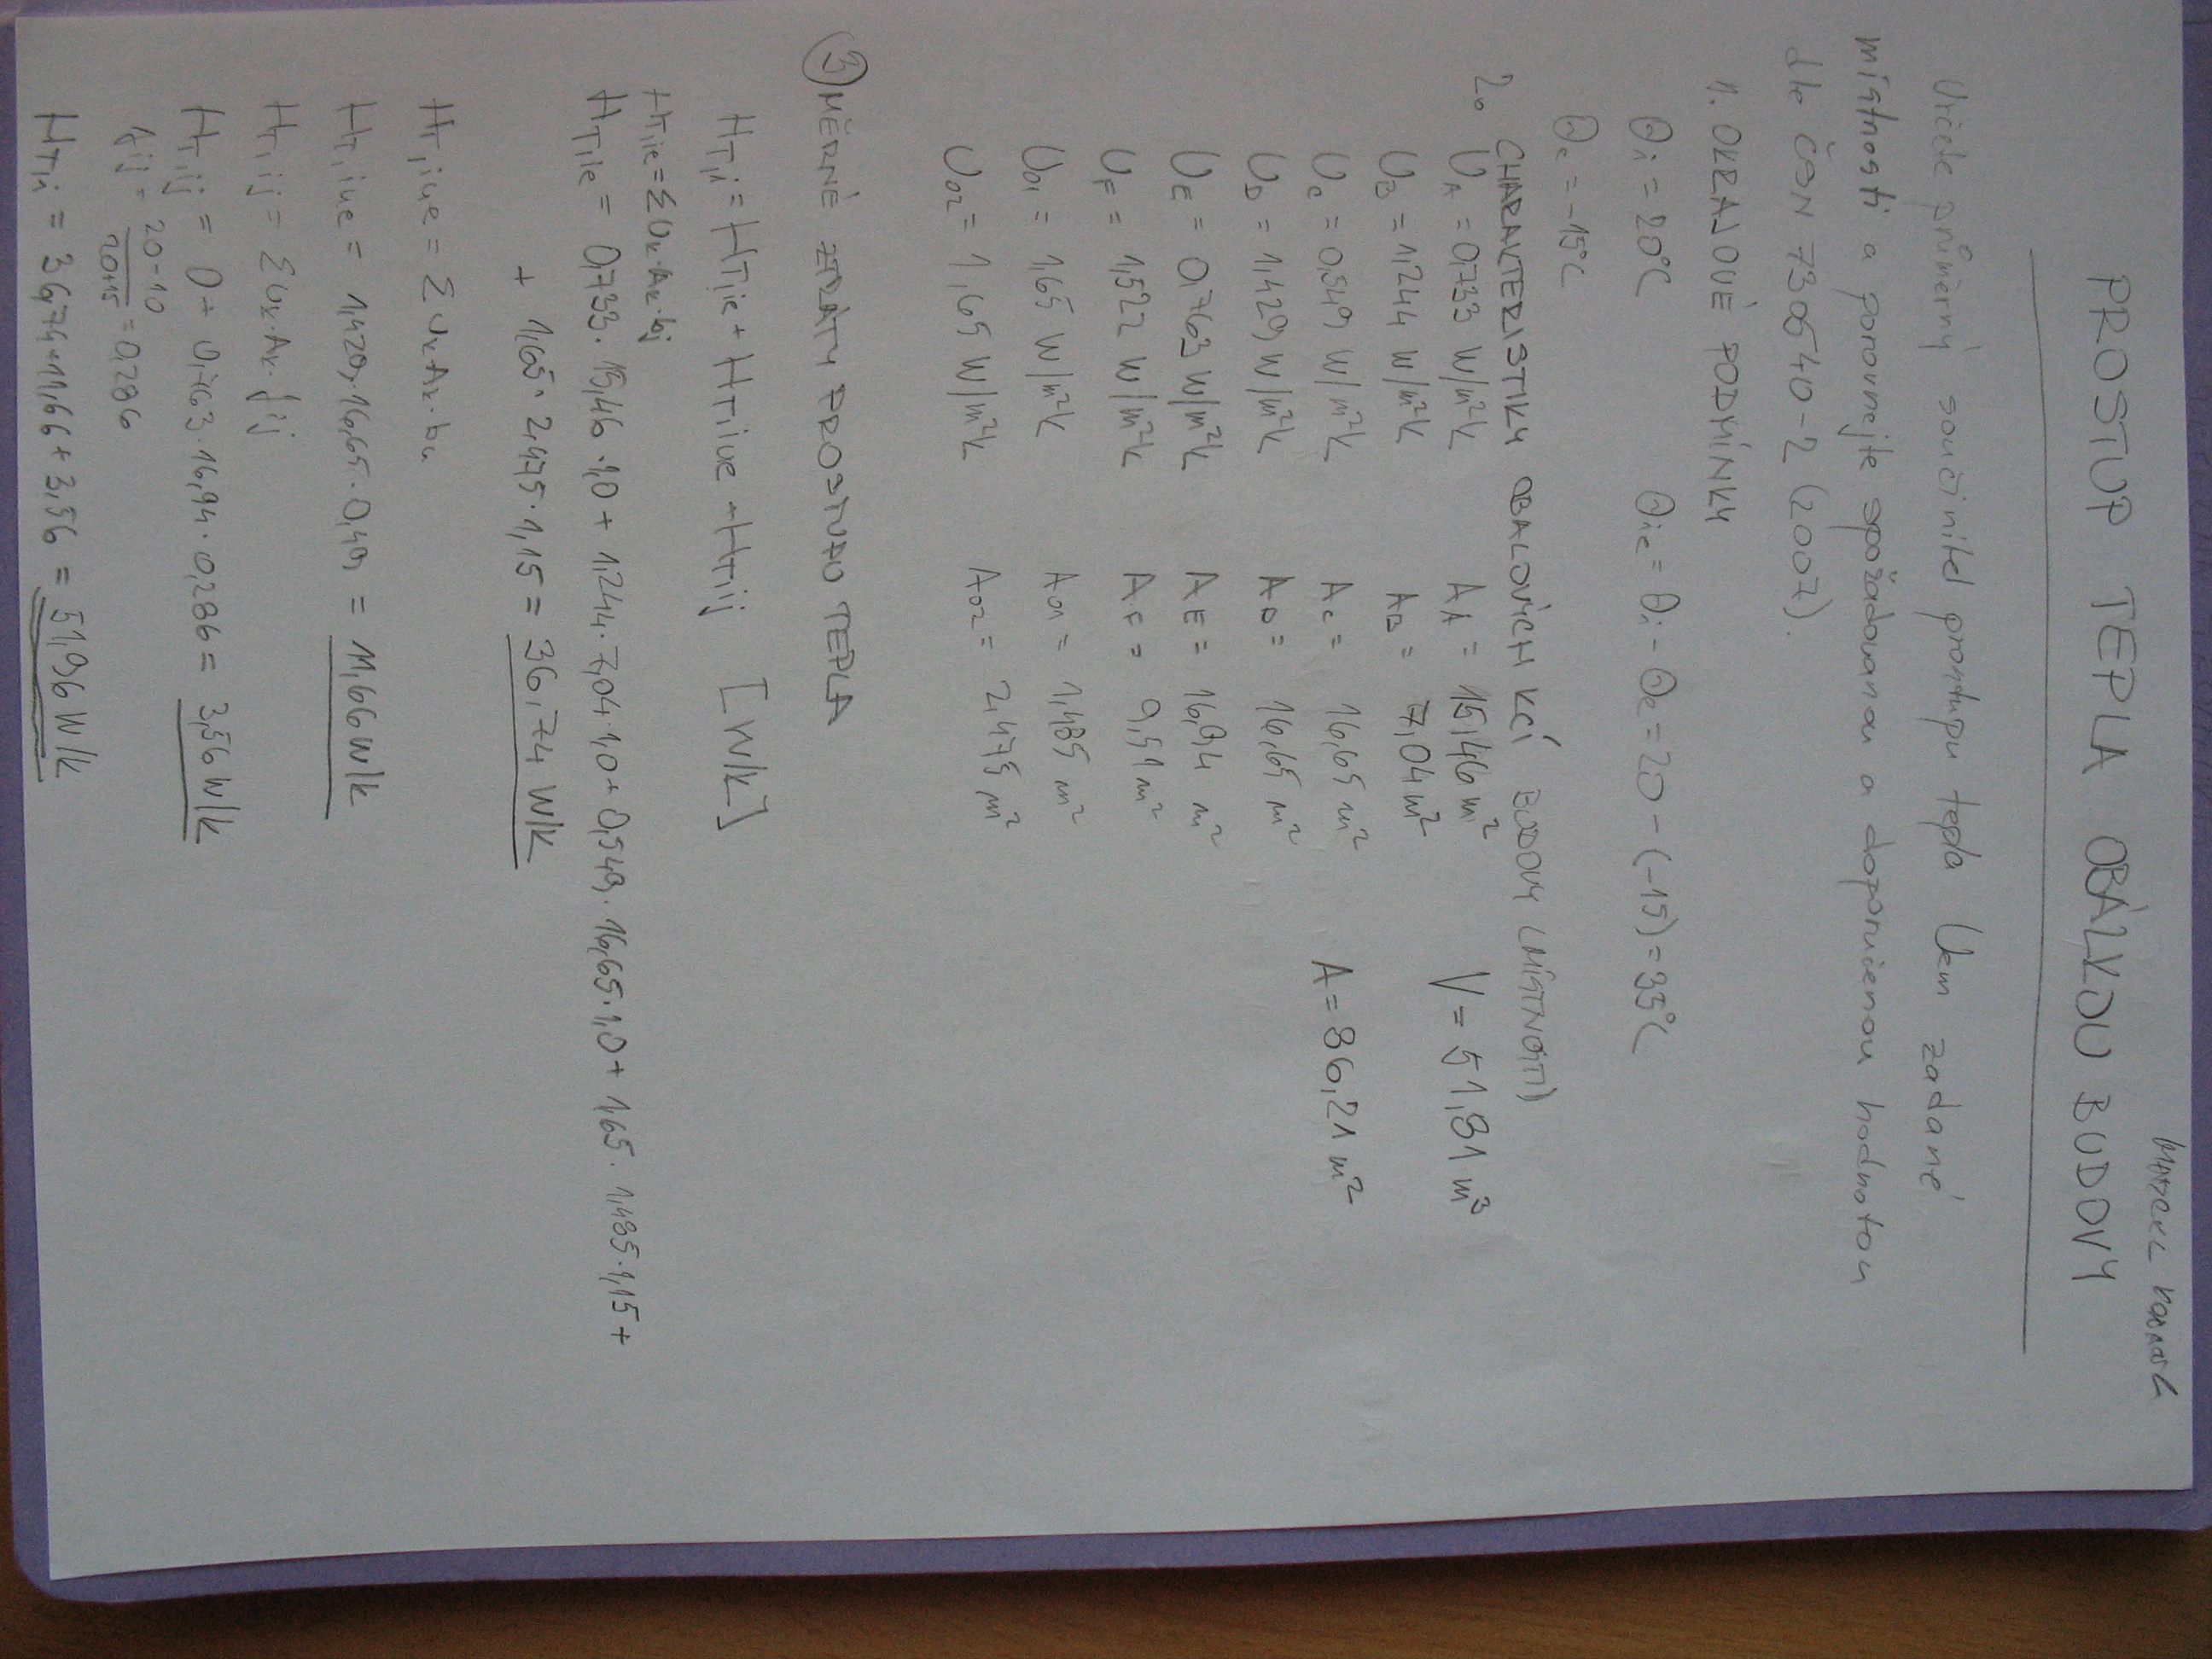 PROSTUP TEPLA OBÁLKOU BUDOVY
Určete průměrný součinitel prostupu tepla Uem zadané
místnosti a porovnejte spožadovanou a doporučenou hodnotou
dle ČSN 730540-2 (2007).
1. OKRAJOVÉ PODMÍNKY
θi = 20°C θie = θi - θe = 20 - (-15) = 35°C
θe = -15°C
2. CHARAKTERISTIKY OBALOVÝCH KCÍ BUDOVY (MÍSTNOSTI)
UA = 0,733 W/m²k AA = 15,46 m² V = 51,81 m³
UB = 1,244 W/m²k AB = 7,04 m²
UC = 0,549 W/m²k AC = 16,65 m² A = 86,21 m²
UD = 1,429 W/m²k AD = 16,65 m²
UE = 0,763 W/m²k AE = 16,94 m²
UF = 1,522 W/m²k AF = 9,51 m²
U01 = 1,65 W/m²k A01 = 1,485 m²
U02 = 1,65 W/m²k A02 = 2,475 m²
3) MĚRNÉ ZTRÁTY PROSTUPU TEPLA
HT,i = HT,ie + HT,iue + HT,ij [W/k]
HT,ie = ΣUk·Ak·bj
HT,ie = 0,733·15,46·1,0 + 1,244·7,04·1,0 + 0,549·16,65·1,0 + 1,65·1,485·1,15 +
+ 1,65·2,475·1,15 = 36,74 W/k
HT,iue = ΣUk·Ak·bu
HT,iue = 1,429·16,65·0,49 = 11,66 W/k
HT,ij = ΣUk·Ak·fij
HT,ij = 0 + 0,763·16,94·0,286 = 3,56 W/k
fij = 20-10 / 20+15 = 0,286
HT,i = 36,74 + 11,66 + 3,56 = 51,96 W/k